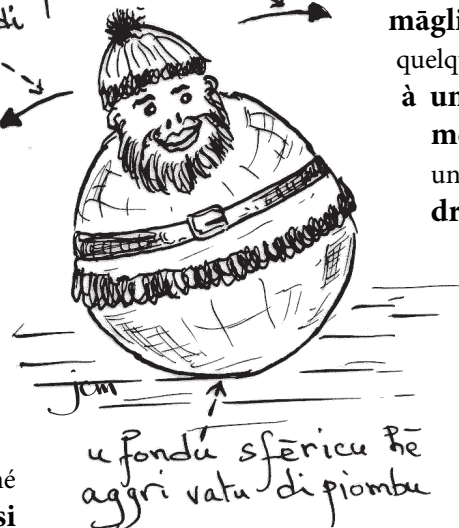 di
māgli
quelqu
à un
me
un
dr
jcm
u fondu sfēricu hē
aggrivatu di piombu
né
si